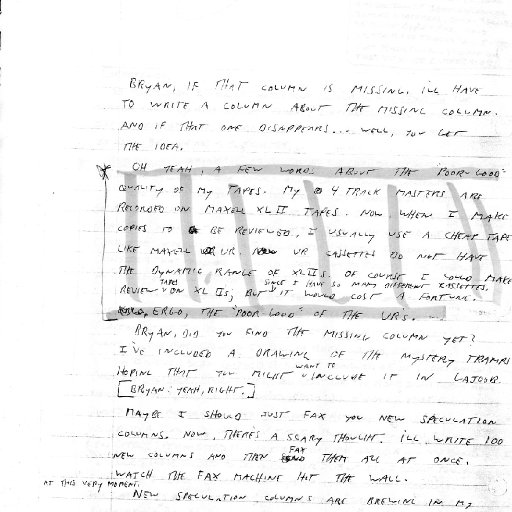 BRYAN, IF THAT COLUMN IS MISSING, I'LL HAVE
TO WRITE A COLUMN ABOUT THE MISSING COLUMN.
AND IF THAT ONE DISAPPEARS... WELL, YOU GET
THE IDEA.
OH YEAH, A FEW WORDS ABOUT THE "POOR LOUD"
QUALITY OF MY TAPES. MY 4 TRACK MASTERS ARE
RECORDED ON MAXELL XL II TAPES. NOW WHEN I MAKE
COPIES TO BE REVIEWED, I USUALLY USE A CHEAP TAPE
LIKE MAXELL UR. UR CASSETTES DO NOT HAVE
THE DYNAMIC RANGE OF XLIIS. OF COURSE I COULD MAKE
REVIEW TAPES ON XL IIS, BUT SINCE I HAVE SO MANY DIFFERENT CASSETTES, IT WOULD COST A FORTUNE.
ERGO, THE "POOR LOUD" OF THE URS.
BRYAN, DID YOU FIND THE MISSING COLUMN YET?
I'VE INCLUDED A DRAWING OF THE MYSTERY TRAMPS
HOPING THAT YOU MIGHT WANT TO INCLUDE IT IN
[BRYAN: YEAH, RIGHT.]
MAYBE I SHOULD JUST FAX YOU NEW SPECULATION
COLUMNS. NOW, THERE'S A SCARY THOUGHT. I'LL WRITE 100
NEW COLUMNS AND THEN FAX THEM ALL AT ONCE.
WATCH THE FAX MACHINE HIT THE WALL.
AT THIS VERY MOMENT.
NEW SPECULATION COLUMNS ARE BREWING IN MY